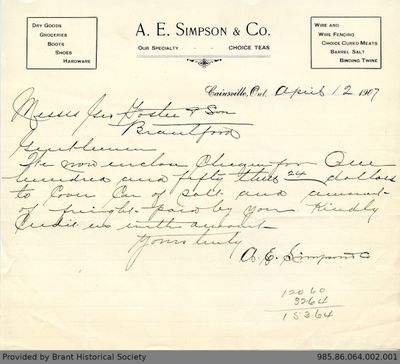 Dry Goods
Groceries
Boots
Shoes
Hardware
A. E. Simpson & Co.
Our Specialty - - Choice Teas
Wire and
Wire Fencing
Choice Cured Meats
Barrel Salt
Binding Twine
Cainsville, Ont. April 12 1907
Messrs Geo Foster & Son
Brantford
Gentlemen
We now enclose Cheque for One
hundred and fifty three 24 dollars
to Cover Car of Salt and amount
of freight paid by you Kindly
Credit us with amount
Yours truly
A. E. Simpson & Co
120 60
32 64
153 64
Provided by Brant Historical Society
985.86.064.002.001